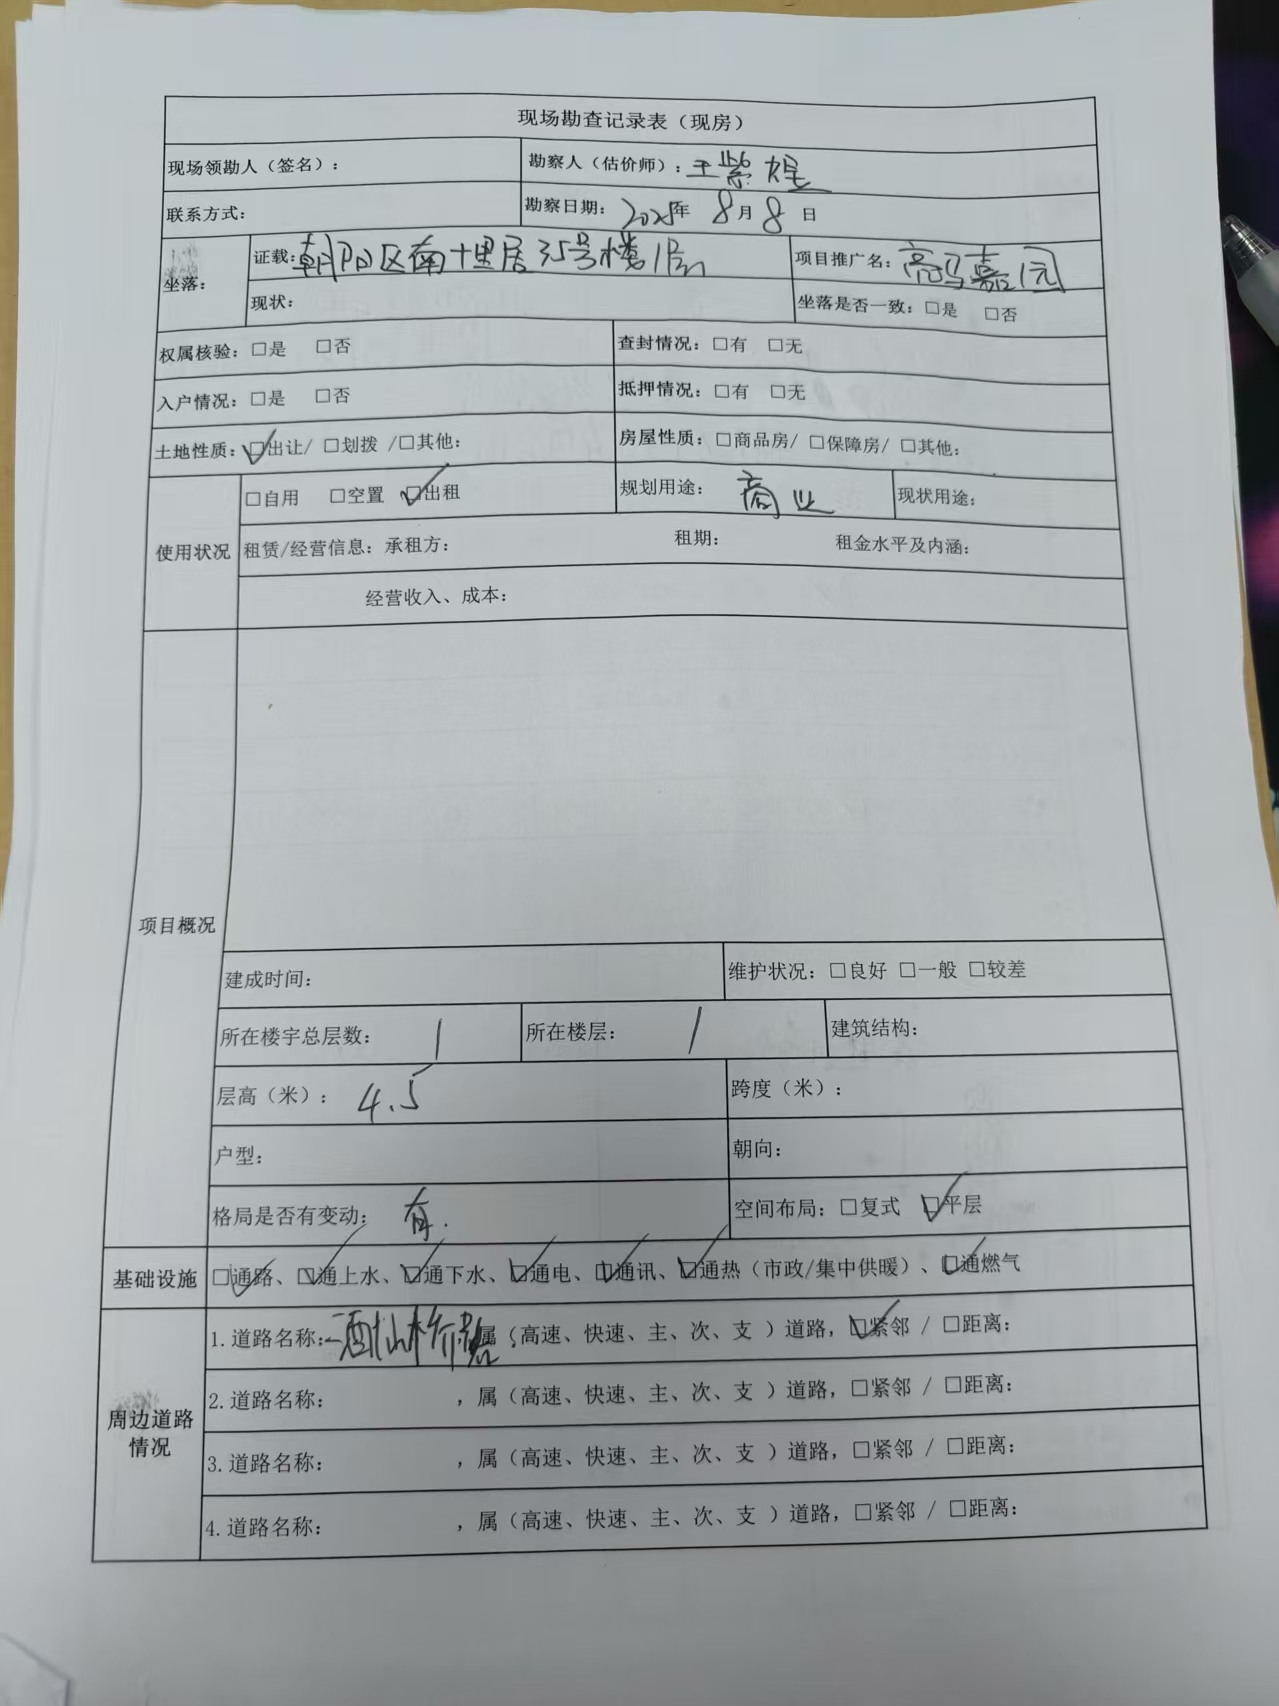 现场勘查记录表（现房）
现场领勘人（签名）： 勘察人（估价师）：王紫煜
联系方式： 勘察日期：2025年 8月8日
坐落： 证载：朝阳区南十里居35号楼1层 项目推广名：高马嘉园
现状： 坐落是否一致：□是 □否
权属核验：□是 □否 查封情况：□有 □无
入户情况：□是 □否 抵押情况：□有 □无
土地性质：☑出让/ □划拨 /□其他： 房屋性质：□商品房/ □保障房/ □其他：
使用状况 □自用 □空置 ☑出租 规划用途：商业 现状用途：
租赁/经营信息：承租方： 租期： 租金水平及内涵：
经营收入、成本：
项目概况
建成时间： 维护状况：□良好 □一般 □较差
所在楼宇总层数：1 所在楼层：1 建筑结构：
层高（米）：4.5 跨度（米）：
户型： 朝向：
格局是否有变动：有. 空间布局：□复式 ☑平层
基础设施 ☑通路、☑通上水、☑通下水、☑通电、☑通讯、☑通热（市政/集中供暖）、☑通燃气
周边道路情况
1.道路名称：酒仙桥路，属（高速、快速、主、次、支 ）道路，☑紧邻 / □距离：
2.道路名称： ，属（高速、快速、主、次、支 ）道路，□紧邻 / □距离：
3.道路名称： ，属（高速、快速、主、次、支 ）道路，□紧邻 / □距离：
4.道路名称： ，属（高速、快速、主、次、支 ）道路，□紧邻 / □距离：